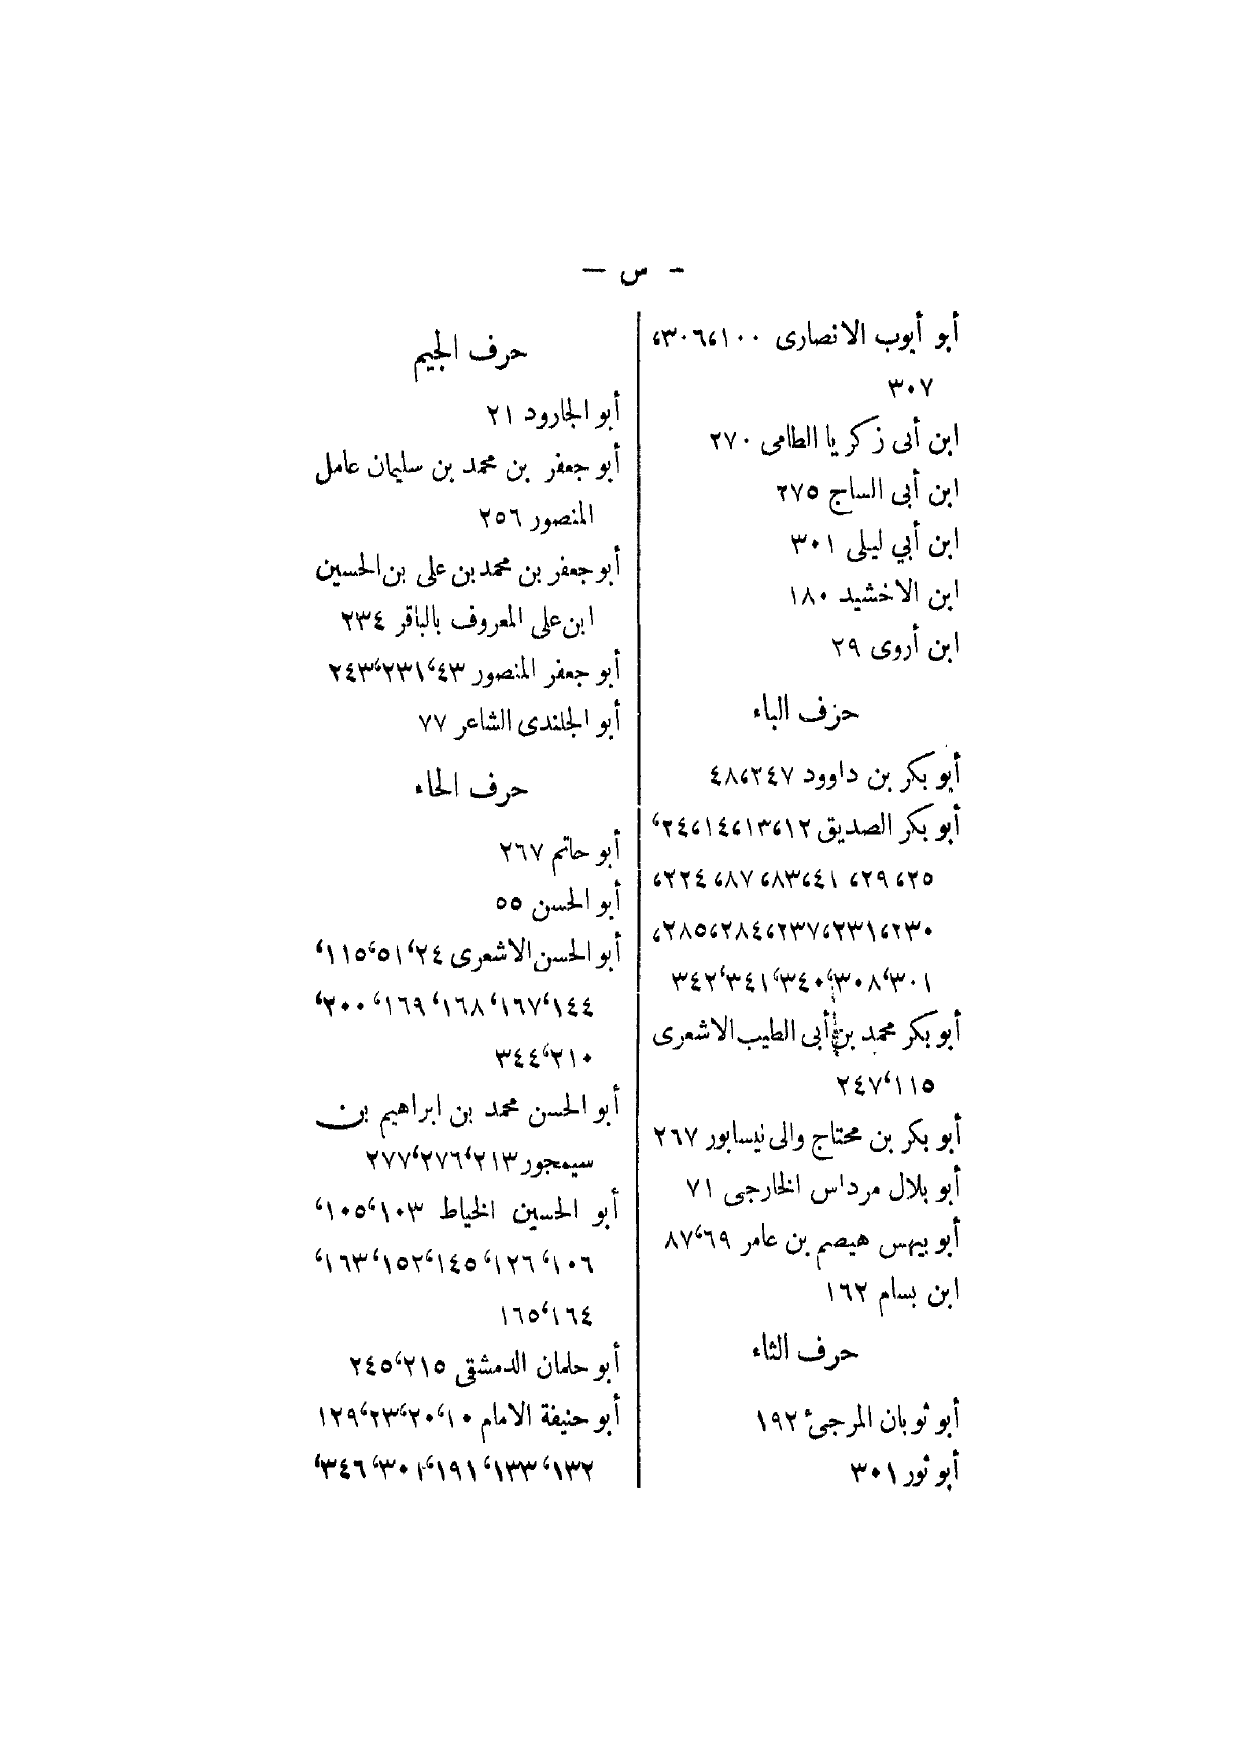 - س -
أبو أيوب الانصارى ١٠٠،٣٠٦،
٣٠٧
ابن أبى زكريا الطامى ٢٧٠
ابن أبى الساج ٢٧٥
ابن أبي ليلى ٣٠١
ابن الاخشيد ١٨٠
ابن أروى ٢٩
حزف الباء
أبو بكر بن داوود ٢٤٧،٤٨
أبو بكر الصديق ١٢،١٣،١٤،٢٤،
٢٥،٢٩، ٤١،٨٣، ٨٧، ٢٢٤،
٢٣٠،٢٣١،٢٣٧،٢٨٤،٢٨٥،
٣٠١،٣٠٨،٣٤٠،٣٤١،٣٤٢
أبو بكر محمد بن أبى الطيب الاشعرى
١١٥،٢٤٧
أبو بكر بن محتاج والى نيسابور ٢٦٧
أبو بلال مرداس الخارجى ٧١
أبو بيهس هيصم بن عامر ٦٩،٨٧
ابن بسام ١٦٢
حرف الثاء
أبو ثوبان المرجئ ١٩٢
أبو ثور ٣٠١
حرف الجيم
أبو الجارود ٢١
أبو جعفر بن محمد بن سليمان عامل
المنصور ٢٥٦
أبو جعفر بن محمد بن على بن الحسين
ابن على المعروف بالباقر ٢٣٤
أبو جعفر المنصور ٤٣،٢٣١،٢٤٣
أبو الجلندى الشاعر ٧٧
حرف الحاء
أبو حاتم ٢٦٧
أبو الحسن ٥٥
أبو الحسن الاشعرى ٢٤،٥١،١١٥،
١٤٤،١٦٧،١٦٨،١٦٩،٢٠٠،
٢١٠،٣٤٤
أبو الحسن محمد بن ابراهيم بن
سيمجور ٢١٣،٢٧٦،٢٧٧
أبو الحسين الخياط ١٠٣،١٠٥،
١٠٦،١٢٦،١٤٥،١٥٢،١٦٣،
١٦٤،١٦٥
أبو حلمان الدمشقى ٢١٥،٢٤٥
أبو حنيفة الامام ١٠،٢٠،٢٣،١٢٩
١٣٢،١٣٣،١٩١،٣٠١،٣٤٦،